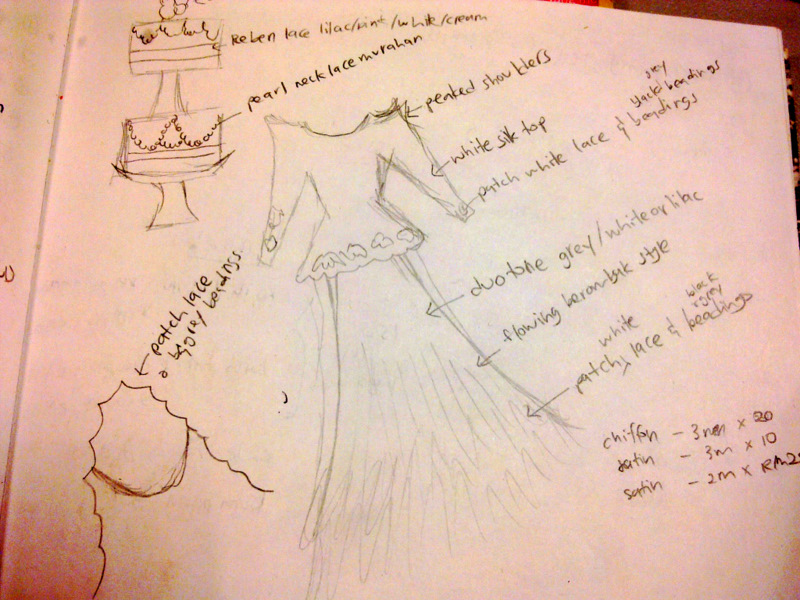 Reben lace lilac/pink/white/cream
pearl necklace murahan
peaked shoulders
white silk top
grey
black beadings
patch white lace & beadings
duotone grey/white or lilac
flowing style
white
black
& grey
patch lace & beadings
patch lace
grey beadings
chiffon - 3m x 20
satin - 3m x 10
satin - 2m x